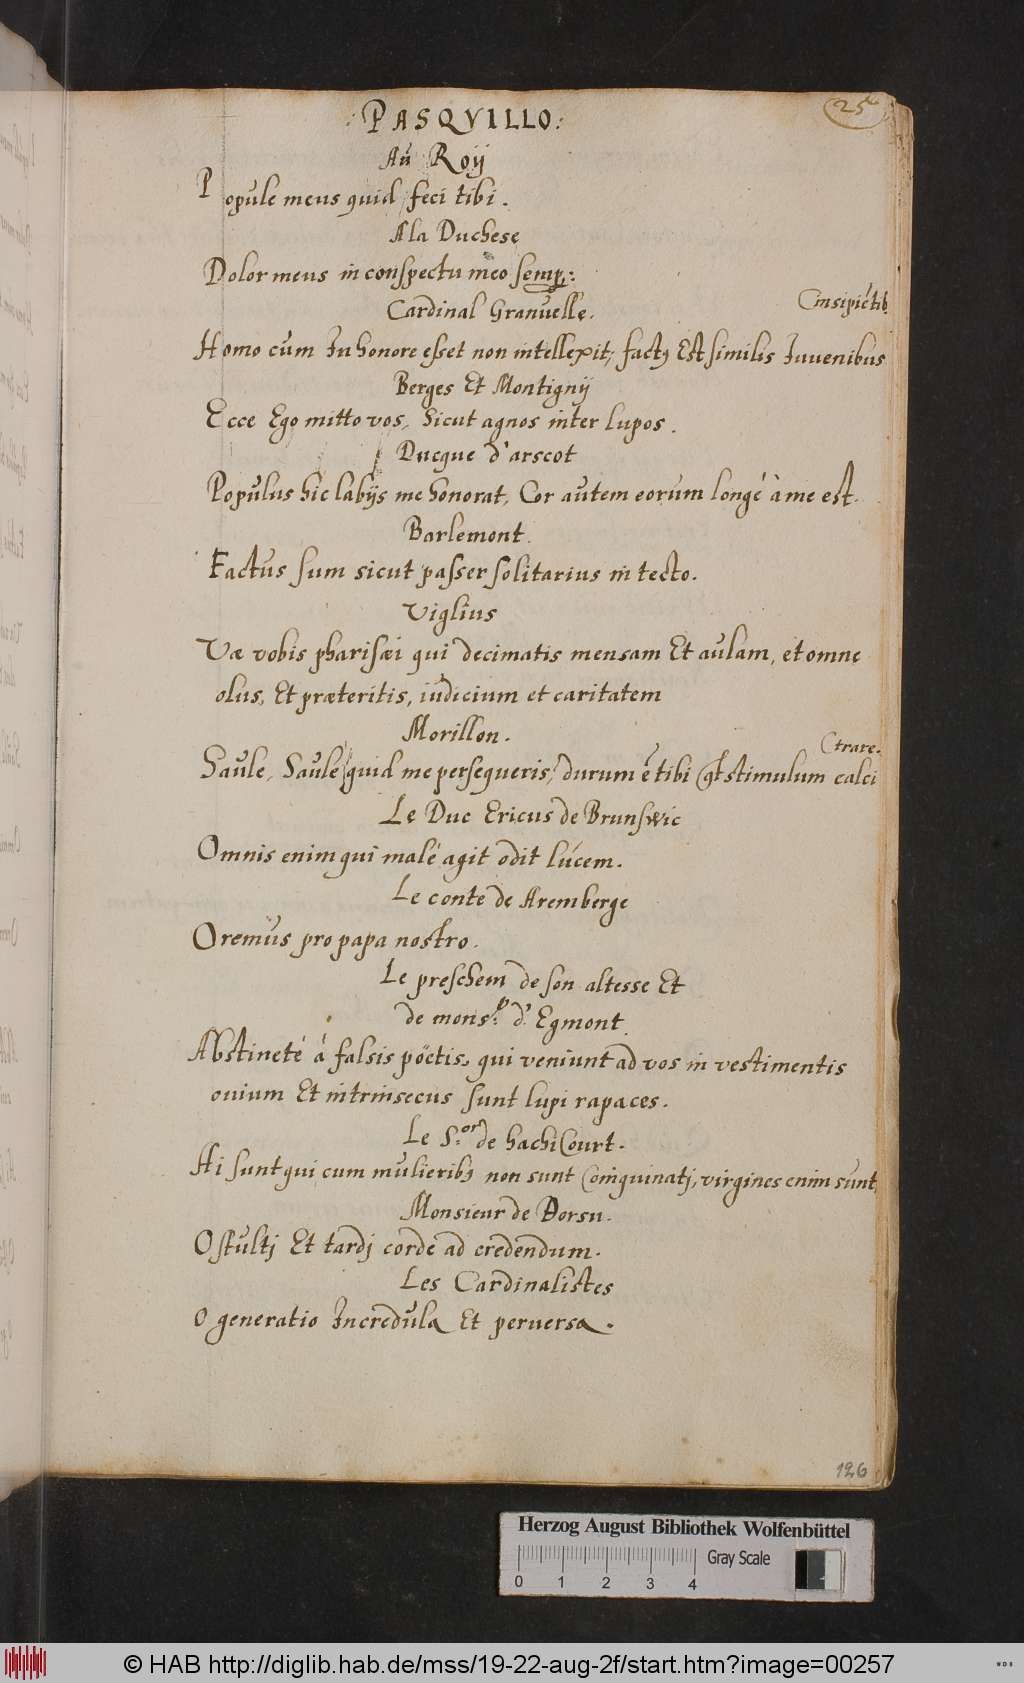 25
: PASQVILLO :
Au Roÿ
Popule meus quid feci tibi.
A la Duchese
Dolor meus in conspectu meo semp.:
Cardinal Granuelle.
insipiētib
Homo cum In honore esset non intellexit, fact9 Est similis Iuuenibus
Berges Et Montignÿ
Ecce Ego mitto vos, Sicut agnos inter lupos.
Ducque d'arscot
Populus hic labijs me honorat, Cor autem eorum longé à me est.
Barlemont.
Factus sum sicut passer solitarius in tecto.
Viglius
Væ vobis pharisæi qui decimatis mensam Et aulam, et omne
olus, Et præteritis, iudicium et caritatem
Morillon.
trare.
Saule, Saulé quid me persequeris, durum ē tibi stimulum calci
Le Duc Ericus de Brunswic
Omnis enim qui malé agit odit lúcem.
Le conte de Aremberge
Oremus pro papa nostro.
Le preschem de son altesse Et
de mons.r d'Egmont
Abstineté á falsis pöetis, qui veniunt ad vos in vestimentis
ouium Et intrinsecus sunt lupi rapaces.
Le S.or de hachicourt.
Hi sunt qui cum mulierib9 non sunt Coinquinatj, virgines enim sunt,
Monsieur de Dorsu.
O stultj Et tardj corde ad credendum.
Les Cardinalistes
O generatio Incredula Et peruersa.
126
Herzog August Bibliothek Wolfenbüttel
Gray Scale
0 1 2 3 4
© HAB http://diglib.hab.de/mss/19-22-aug-2f/start.htm?image=00257